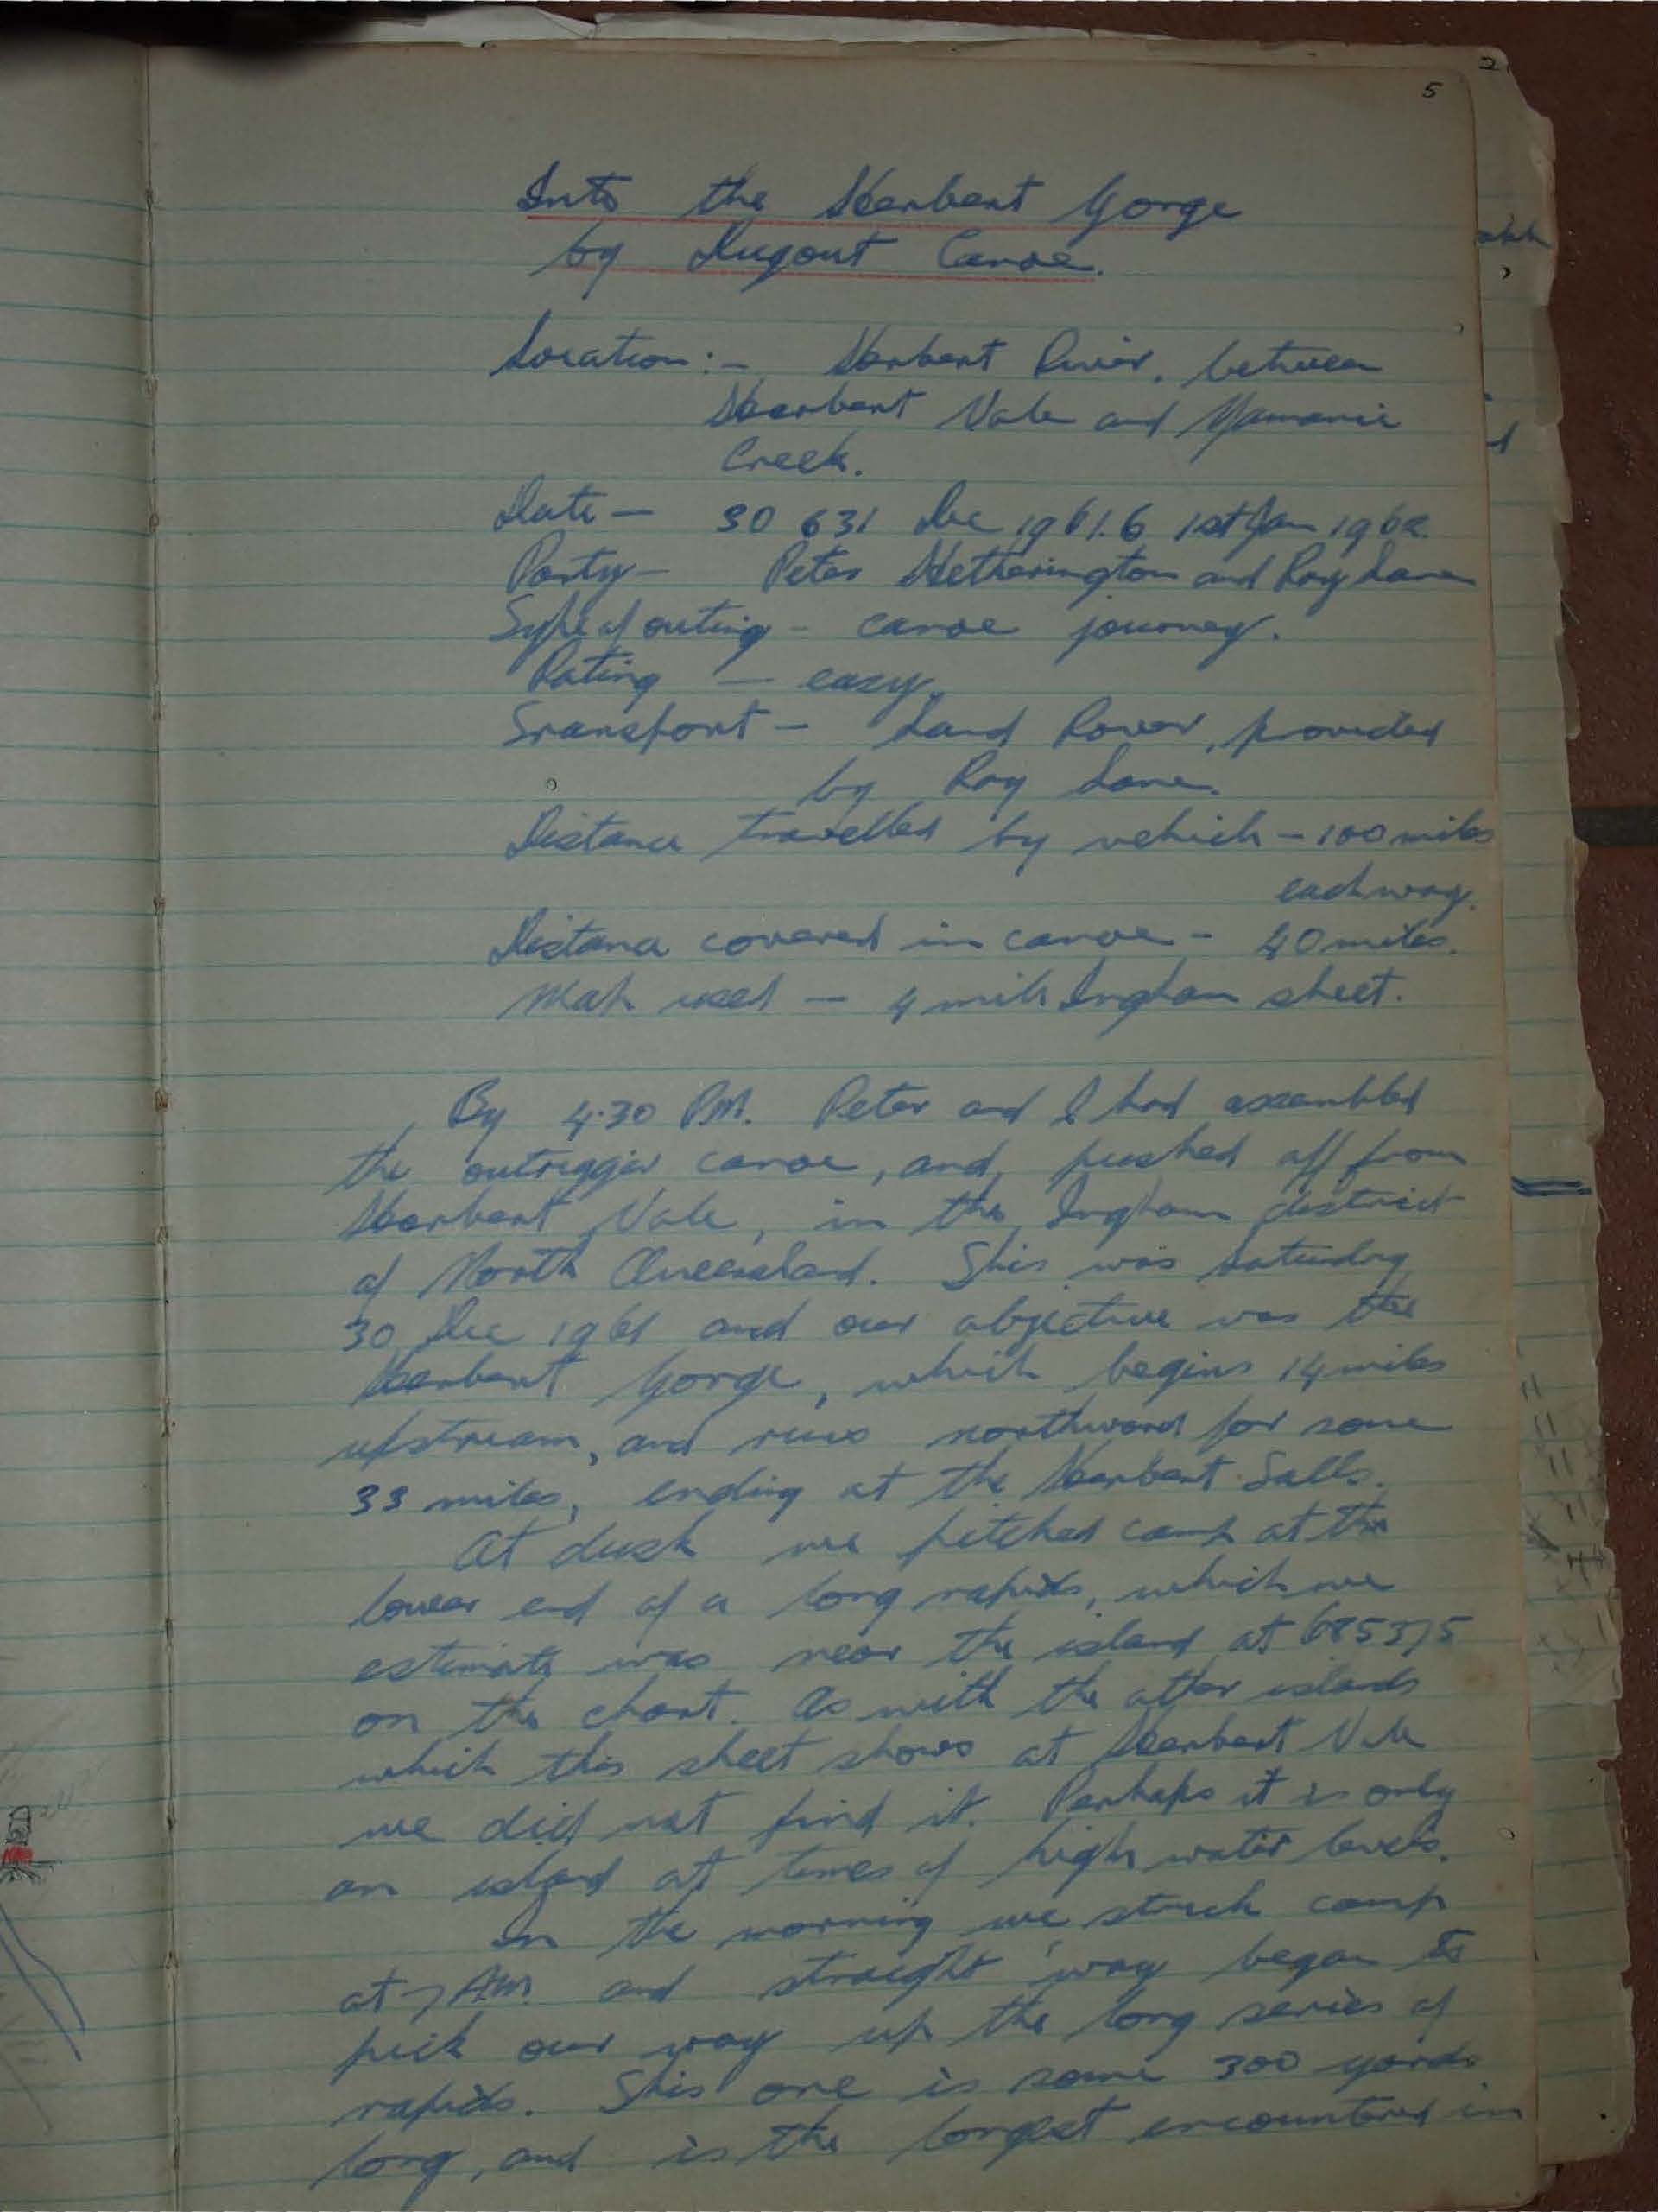 5
Into the Herbert Gorge
by Dugout Canoe.
Location:- Herbert River, between
Herbert Vale and Yamanie
Creek.
Date — 30 & 31 Dec 1961. & 1st Jan 1962.
Party — Peter Hetherington and Roy Lane
Type of outing - canoe journey.
Rating — easy.
Transport — Land Rover, provided
by Roy Lane.
Distance travelled by vehicle - 100 miles
each way.
Distance covered in canoe - 40 miles.
Map used — 4 mile Ingham sheet.
By 4.30 PM. Peter and I had assembled
the outrigger canoe, and, pushed off from
Herbert Vale, in the Ingham district
of North Queensland. This was Saturday
30 Dec 1961 and our objective was the
Herbert Gorge, which begins 14 miles
upstream, and runs northward for some
33 miles, ending at the Herbert Falls.
At dusk we pitched camp at the
lower end of a long rapids, which we
estimate was near the island at 685375
on the chart. As with the other islands
which this sheet shows at Herbert Vale
we did not find it. Perhaps it is only
an island at times of high water levels.
In the morning we struck camp
at 7 AM. and straight way began to
pick our way up the long series of
rapids. This one is some 300 yards
long, and is the longest encountered in